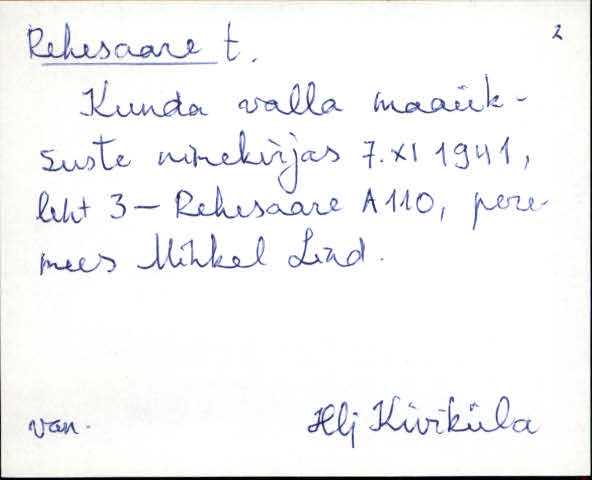 Rehesaare t.
2
Kunda valla maaük-
suste nimekirjas 7.XI 1941,
leht 3 – Rehesaare A110, pere-
mees Mihkel Lind.
van.
Hlj Kiviküla